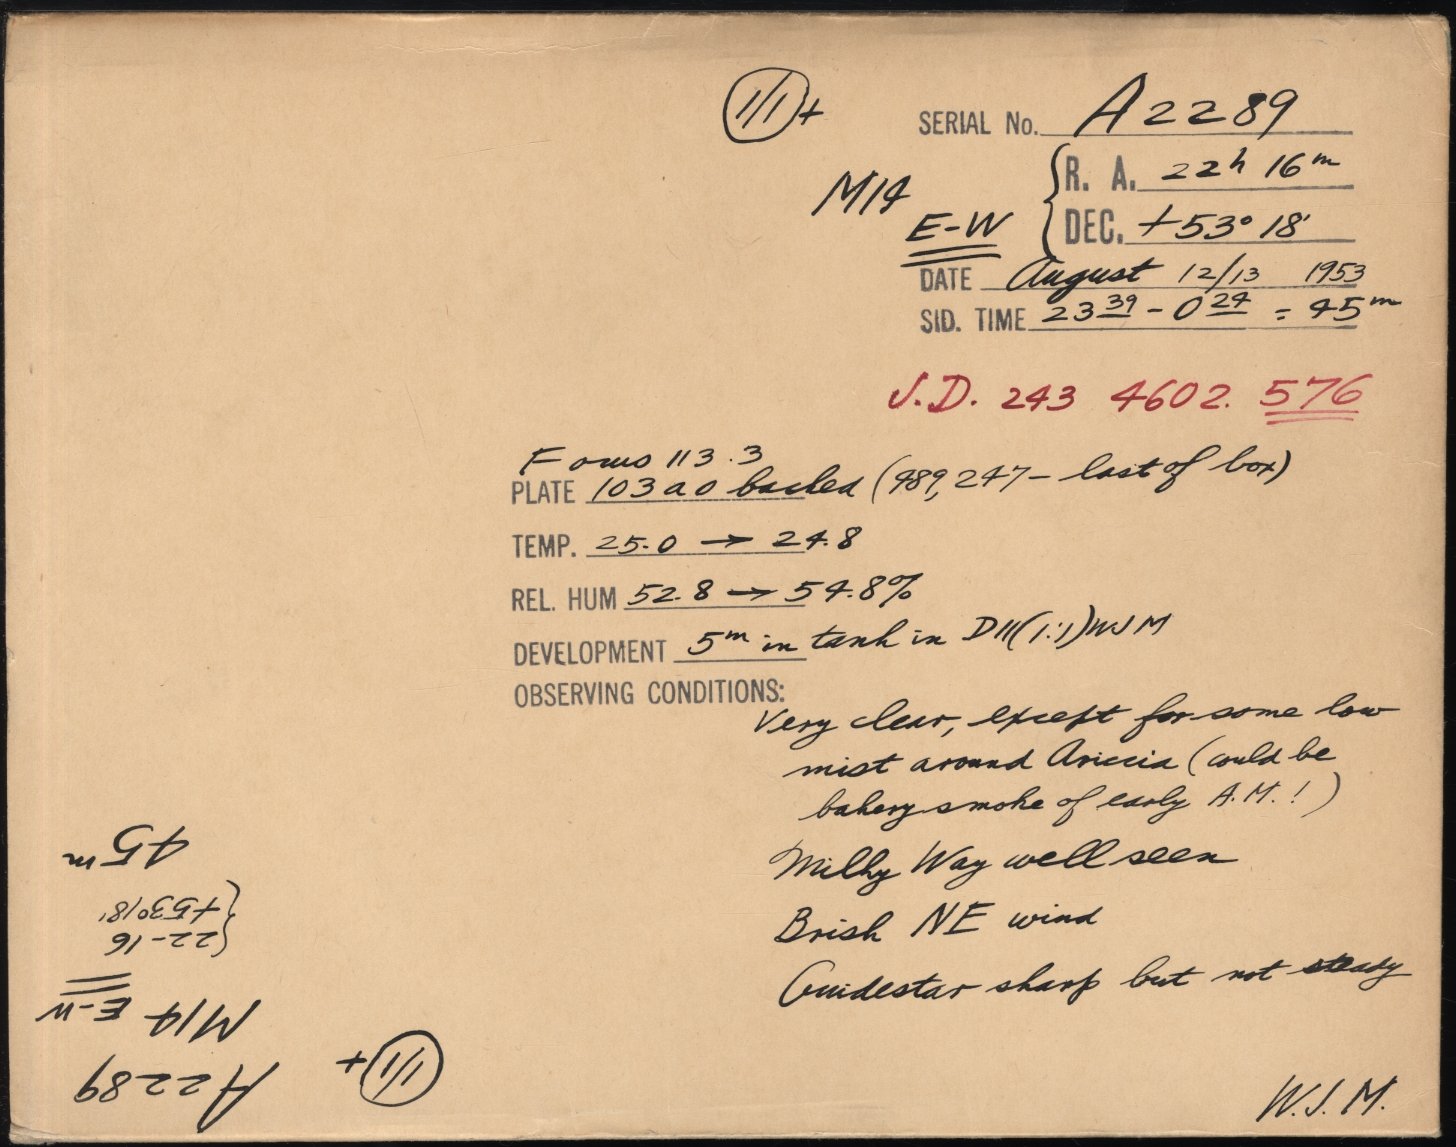 1/1 +
SERIAL No. A2289
M14
R. A. 22h 16m
E-W
DEC. +53° 18'
DATE August 12/13 1953
SID. TIME 23 39 - 0 24 = 45m
J.D. 243 4602.576
Focus 113.3
PLATE 103a0 backed (989,247 - last of box)
TEMP. 25.0 → 24.8
REL. HUM 52.8 → 54.8%
DEVELOPMENT 5m in tank in D11(1:1) WJM
OBSERVING CONDITIONS:
Very clear, except for some low
mist around Ariccia (could be
bakery smoke of early A.M.!)
Milky Way well seen
Brisk NE wind
Guidestar sharp but not steady
W.J.M.
A2289
1/1 +
M14 E-W
22-16
+53°18'
45m